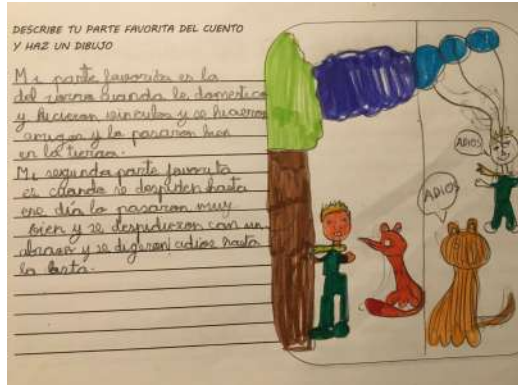 DESCRIBE TU PARTE FAVORITA DEL CUENTO
Y HAZ UN DIBUJO
Mi parte favorita es la
del zorro cuando le domestico
y hicieron vinculos y se hicieron
amigos y lo pasaron bien
en la tierra.
Mi segunda parte favorita
es cuando se despiden hasta
ese día lo pasaron muy
bien y se despidieron con un
abrazo y se digeron adios hasta
la
ADIOS
ADIOS